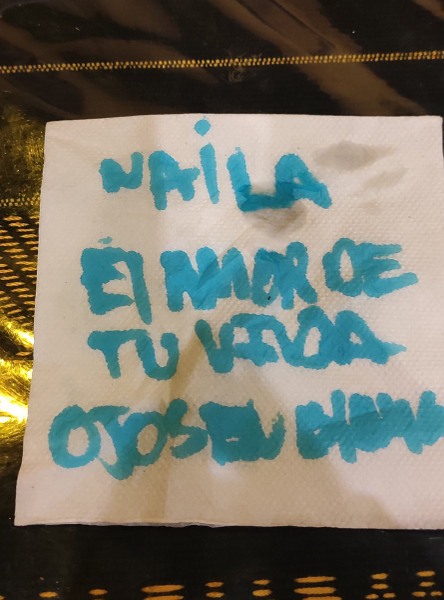 NAiLA
El AMOR DE
TU VIDA
OJOS EN